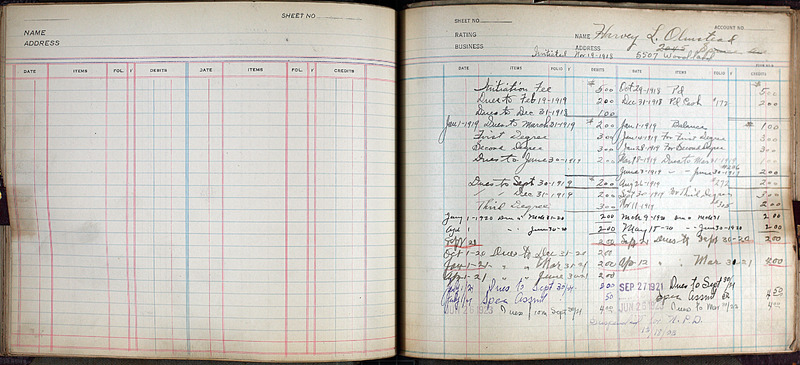 SHEET NO.
NAME
ADDRESS
DATE ITEMS FOL. DEBITS DATE ITEMS FOL. CREDITS
SHEET NO. ACCOUNT NO.
RATING NAME Harvey L. Olmstead
BUSINESS ADDRESS
Initiated Nov 19-1918 5507 Woodland
DATE ITEMS FOLIO DEBITS DATE ITEMS FOLIO CREDITS
Initiation Fee 5 00 Oct 29-1918 Pd 5 00
Dues to Feb 19-1919 2 00 Dec 31-1918 Pd Cash 2 00
Dues to Dec 31-1918 1 00
Jan 1-1919 Dues to March 31-1919 2 00 Jan 1-1919 Balance 1 00
First Degree 3 00 Jan 14-1919 For First Degree 3 00
Second Degree 3 00 Jan 28-1919 For Second Degree 3 00
Dues to June 30-1919 2 00 Mar 18-1919 Dues to Mar 31-1919 1 00
June 7-1919 " " June 30-1919 2 00
Dues to Sept 30-1919 2 00 Aug 26-1919 2 00
" " Dec 31-1919 2 00 Sept 30-1919 For Third Degree 3 00
Third Degree 3 00 Nov 11-1919 2 00
Jany 1-1920 Mch 31-20 2 00 Mch 9-1920 Mch 31 2 00
Apl 1 " June 30-20 2 00 May 18-20 June 30-1920 2 00
2 00 Sept 21 Dues to Sept 30-20 2 00
Oct 1-20 Dues to Dec 31-20 2 00
Jan 1-21 " " Mar 31-21 2 00 Apr 12 " Mar 31-21 4 00
Apr 1-21 " " June 30-21 2 00
July 1/21 Dues to Sept 30/21 2 00 SEP 27 1921 Dues to Sept 30/21
Spec Assmt 50 Spec Assmt 4 50
Dues 4 00 JUN 26 1923 Dues to Mar 4 00
N.P.D.